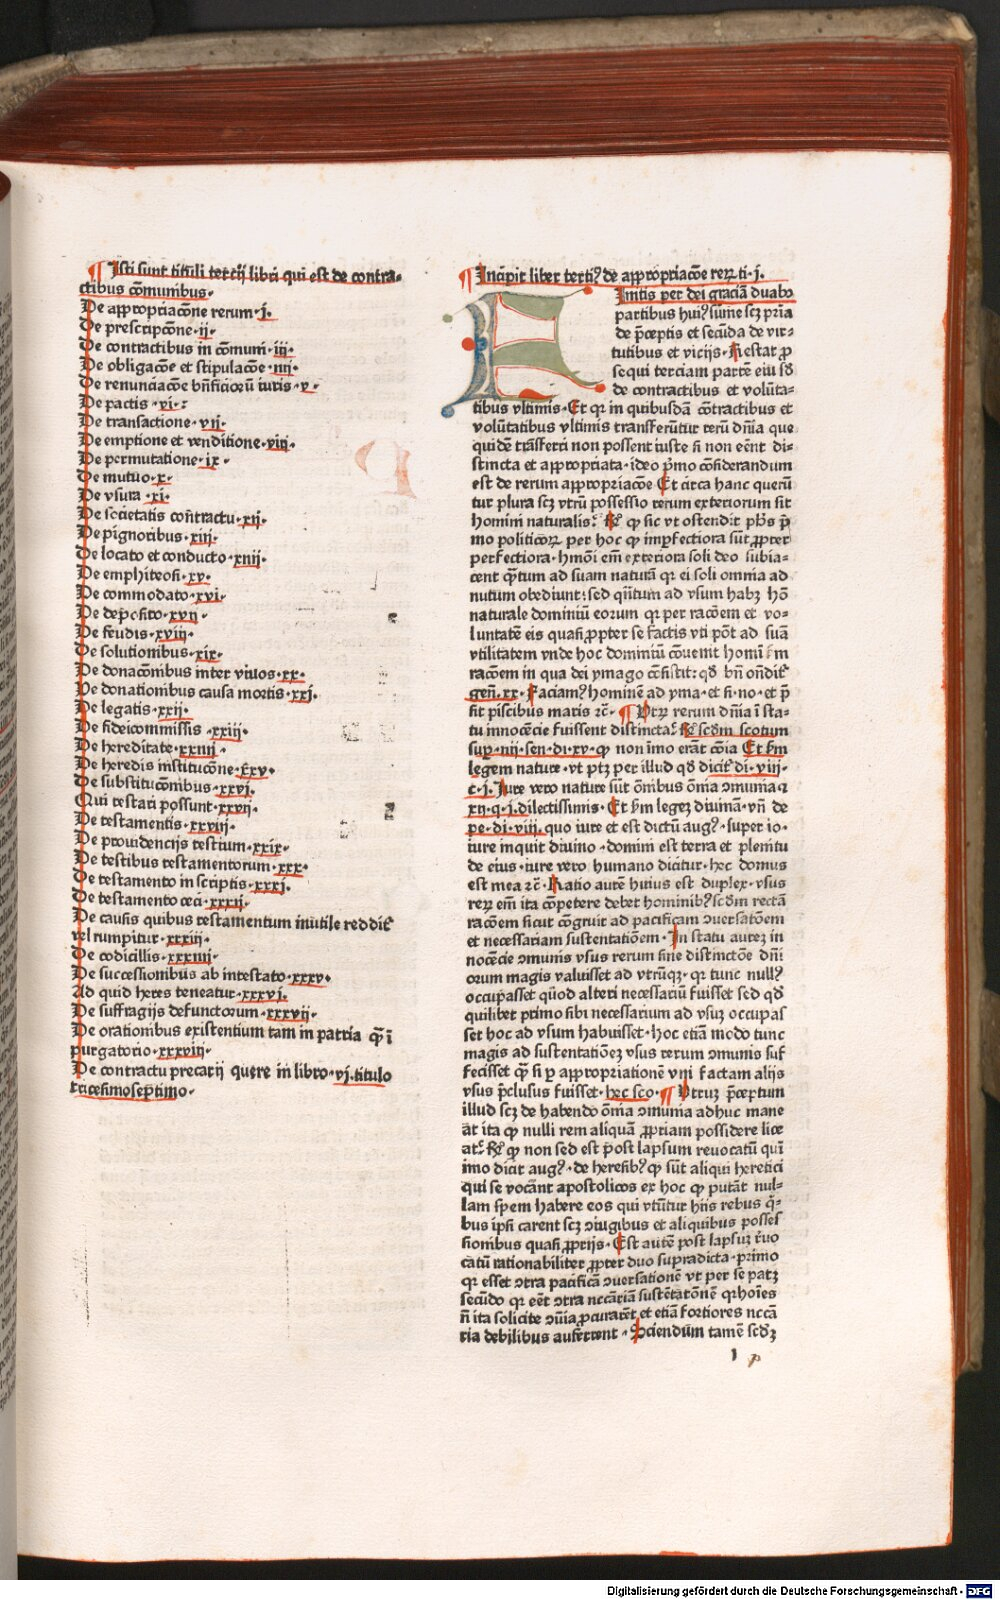 ¶ Isti sunt tituli tertij libri qui est de contra-
ctibus cōmunibus.
De appropriacōne rerum .j.
De prescripcōne .ij.
De contractibus in cōmuni .iij.
De obligacōe et stipulacōe .iiij.
De renunciacōe bn̄ficiorū iuris .v.
De pactis .vi.
De transactione .vij.
De emptione et venditione .viij.
De permutatione .ix.
De mutuo .x.
De vsura .xi.
De societatis contractu .xij.
De pignoribus .xiij.
De locato et conducto .xiiij.
De emphiteosi .xv.
De commodato .xvi.
De deposito .xvij.
De feudis .xviij.
De solutionibus .xix.
De donacōnibus inter viuos .xx.
De donationibus causa mortis .xxj.
De legatis .xxij.
De fideicommissis .xxiij.
De hereditate .xxiiij.
De heredis institucōne .xxv.
De substitucōnibus .xxvi.
Qui testari possunt .xxvij.
De testamentis .xxviij.
De prouidencijs testium .xxix.
De testibus testamentorum .xxx.
De testamento in scriptis .xxxj.
De testamento ceci .xxxij.
De causis quibus testamentum inutile reddit᷑
vel rumpitur .xxxiij.
De codicillis .xxxiiij.
De successionibus ab intestato .xxxv.
Ad quid heres teneatur .xxxvj.
De suffragijs defunctorum .xxxvij.
De orationibus existentium tam in patria ꝙ̄ ī
purgatorio .xxxviij.
De contractu precarij quere in libro .vj. titulo
tricesimoseptimo.
¶ Incipit liber terti⁹ de appropriacōne reꝝ ti. j.
Finitis per dei graciā duabꝫ
partibus hui⁹ sūme scꝫ pria
de p̄ceptis et secūda de vir-
tutibus et vicijs. Restat ꝓ
sequi terciam partē eiusdē
de contractibus et volūta-
tibus vltimis. Et qꝛ in quibusdā cōtractibus et
volūtatibus vltimis transferūtur rerū dn̄ia que
quidē trāsferri non possent iuste si non eēnt di-
stincta et appropriata. ideo p̄mo cōsiderandum
est de rerum appropriacōe Et circa hanc querū
tur plura scꝫ vtrū possessio rerum exteriorum sit
homini naturalis. Rꝰ ꝙ sic vt ostendit ph̄s p̄
mo politicoꝝ per hoc ꝙ imp̄fectiora sūt ꝓpter
perfectiora. hmōi em̄ exteriora soli deo subia-
cent ꝙ̄tum ad suam naturā qꝛ ei soli omnia ad
nutum obediunt: sed q̄ntum ad vsum habꝫ hō
naturale dominiū eorum qꝛ per racōem et vo-
luntatē eis quasi ꝓpter se factis vti pōt ad suā
vtilitatem vnde hoc dominiū cōuenit homī s̄m
racōem in qua dei ymago cōsistit: qd̄ bn̄ ondit᷑
gen̄. xx. Faciam⁹ hominē ad yma. et si. no. et p̄
sit piscibus maris ⁊c̄. ¶ Vtꝝ rerum dn̄ia ī sta-
tu innocēcie fuissent distincta. Rꝰ scd̄m scotum
suꝑ .iiij. sen. di. xv. ꝙ non īmo erāt cōia Et s̄m
legem nature. vt ptꝫ per illud qd̄ dicit᷑ di. viij.
c. j. Iure vero nature sūt ōmnibus ōnia ꝯmunia ⁊
xij. q. j. dilectissimis. Et s̄m legeꝫ diuinā. vn̄ de
pe. di. viij. quo iure et est dictū aug⁹. super io-
iure inquit diuino. domini est terra et plenitu
do eius. iure vero humano dicitur. hec domus
est mea ⁊c̄. Ratio autē huius est duplex. vsus
reꝝ em̄ ita cōpetere debet hominib⁹ scd̄m rectā
racōem sicut cōgruit ad pacificam ꝯuersatōem
et necessariam sustentatiōem. In statu auteꝫ in
nocēcie ꝯmunis vsus rerum sine distinctōe dn̄i
orum magis valuisset ad vtrūqꝫ. qꝛ tunc null⁹
occupasset quod alteri necessariū fuisset sed qd̄
quilibet primo sibi necessarium ad vsuꝫ occupas
set hoc ad vsum habuisset. hoc etiā modo tunc
magis ad sustentatiōeꝫ vsus rerum ꝯmunis suf
fecisset ꝙ̄ si ꝑ appropriationē vni factam alijs
vsus p̄clusus fuisset. hec sco. ¶ Vtruꝫ p̄ceptum
illud scꝫ de habendo ōnia ꝯmunia adhuc mane
at ita ꝙ nulli rem aliquā ꝓpriam possidere lice
at. Rꝰ ꝙ non sed est post lapsum reuocatū qui
imo dicit aug⁹. de heresib⁹ ꝙ sūt aliqui heretici
qui se vocānt apostolicos ex hoc ꝙ putāt nul-
lam spem habere eos qui vtūtur hiis rebus q̄-
bus ipsi carent scꝫ ꝯiugibus et aliquibus posses
sionibus quasi ꝓprijs. Est autē post lapsuꝫ r̄uo
catū rationabiliter ꝓpter duo supradicta. primo
qꝛ esset ꝯtra pacificā ꝯuersationē vt per se patꝫ
secūdo qꝛ eēt ꝯtra nccāriā sustētatōnē qꝛ hoīes
n̄ ita solicite ꝯīa ꝓcurarēt et etiā fortiores nccā
ria debilibus auferrent. Sciendūm tamē scd̄ꝫ
I p
Digitalisierung gefördert durch die Deutsche Forschungsgemeinschaft - DFG